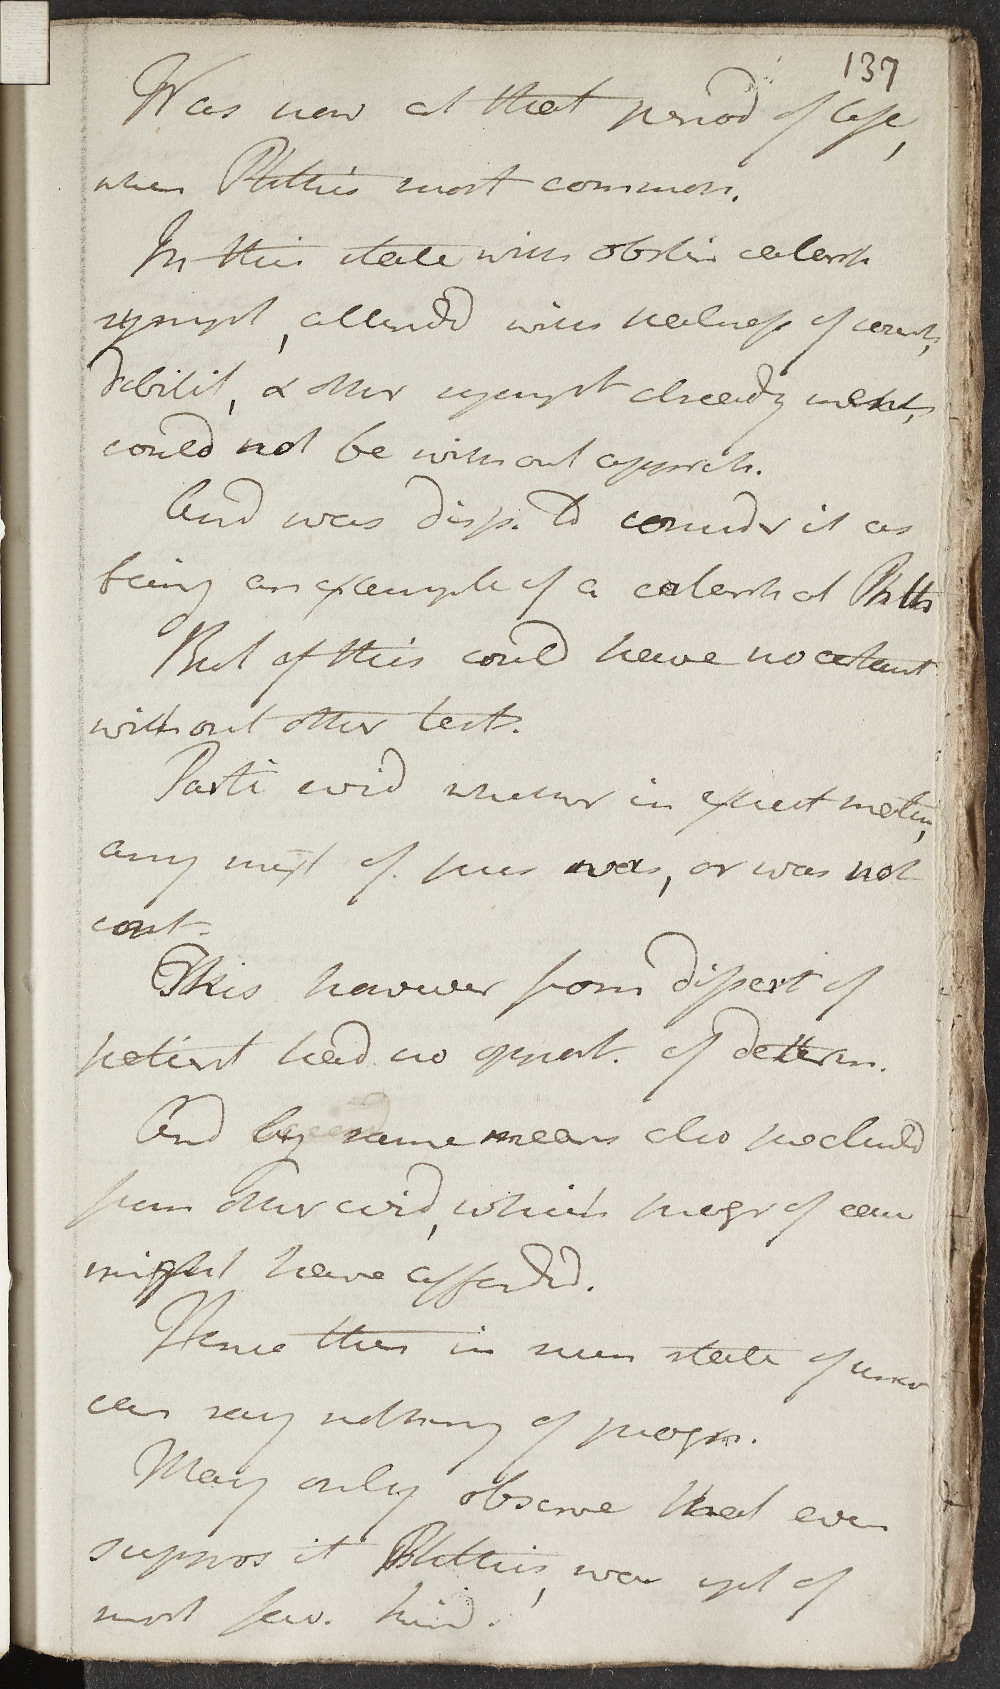 137
Was now at that period of life,
when Phthisis most common.
In this state with obstin catarrh
sympt, attended with
debilit, & other sympt already ment,
could not be without appreh.
And was disp. to consider it as
being an example of a catarrhal Phths
But of this could have no
without other tests.
Parti evid whether in expect matter,
any mixt of pus was, or was not
cont.
This however from disert of
patient had no opport. of determ.
And by same means also precluded
from other evid, which progr of
might have afforded.
Hence then in state of
can say nothing of progn.
May only observe that even
suppos it Phthisis, was yet of
most fav. kind.